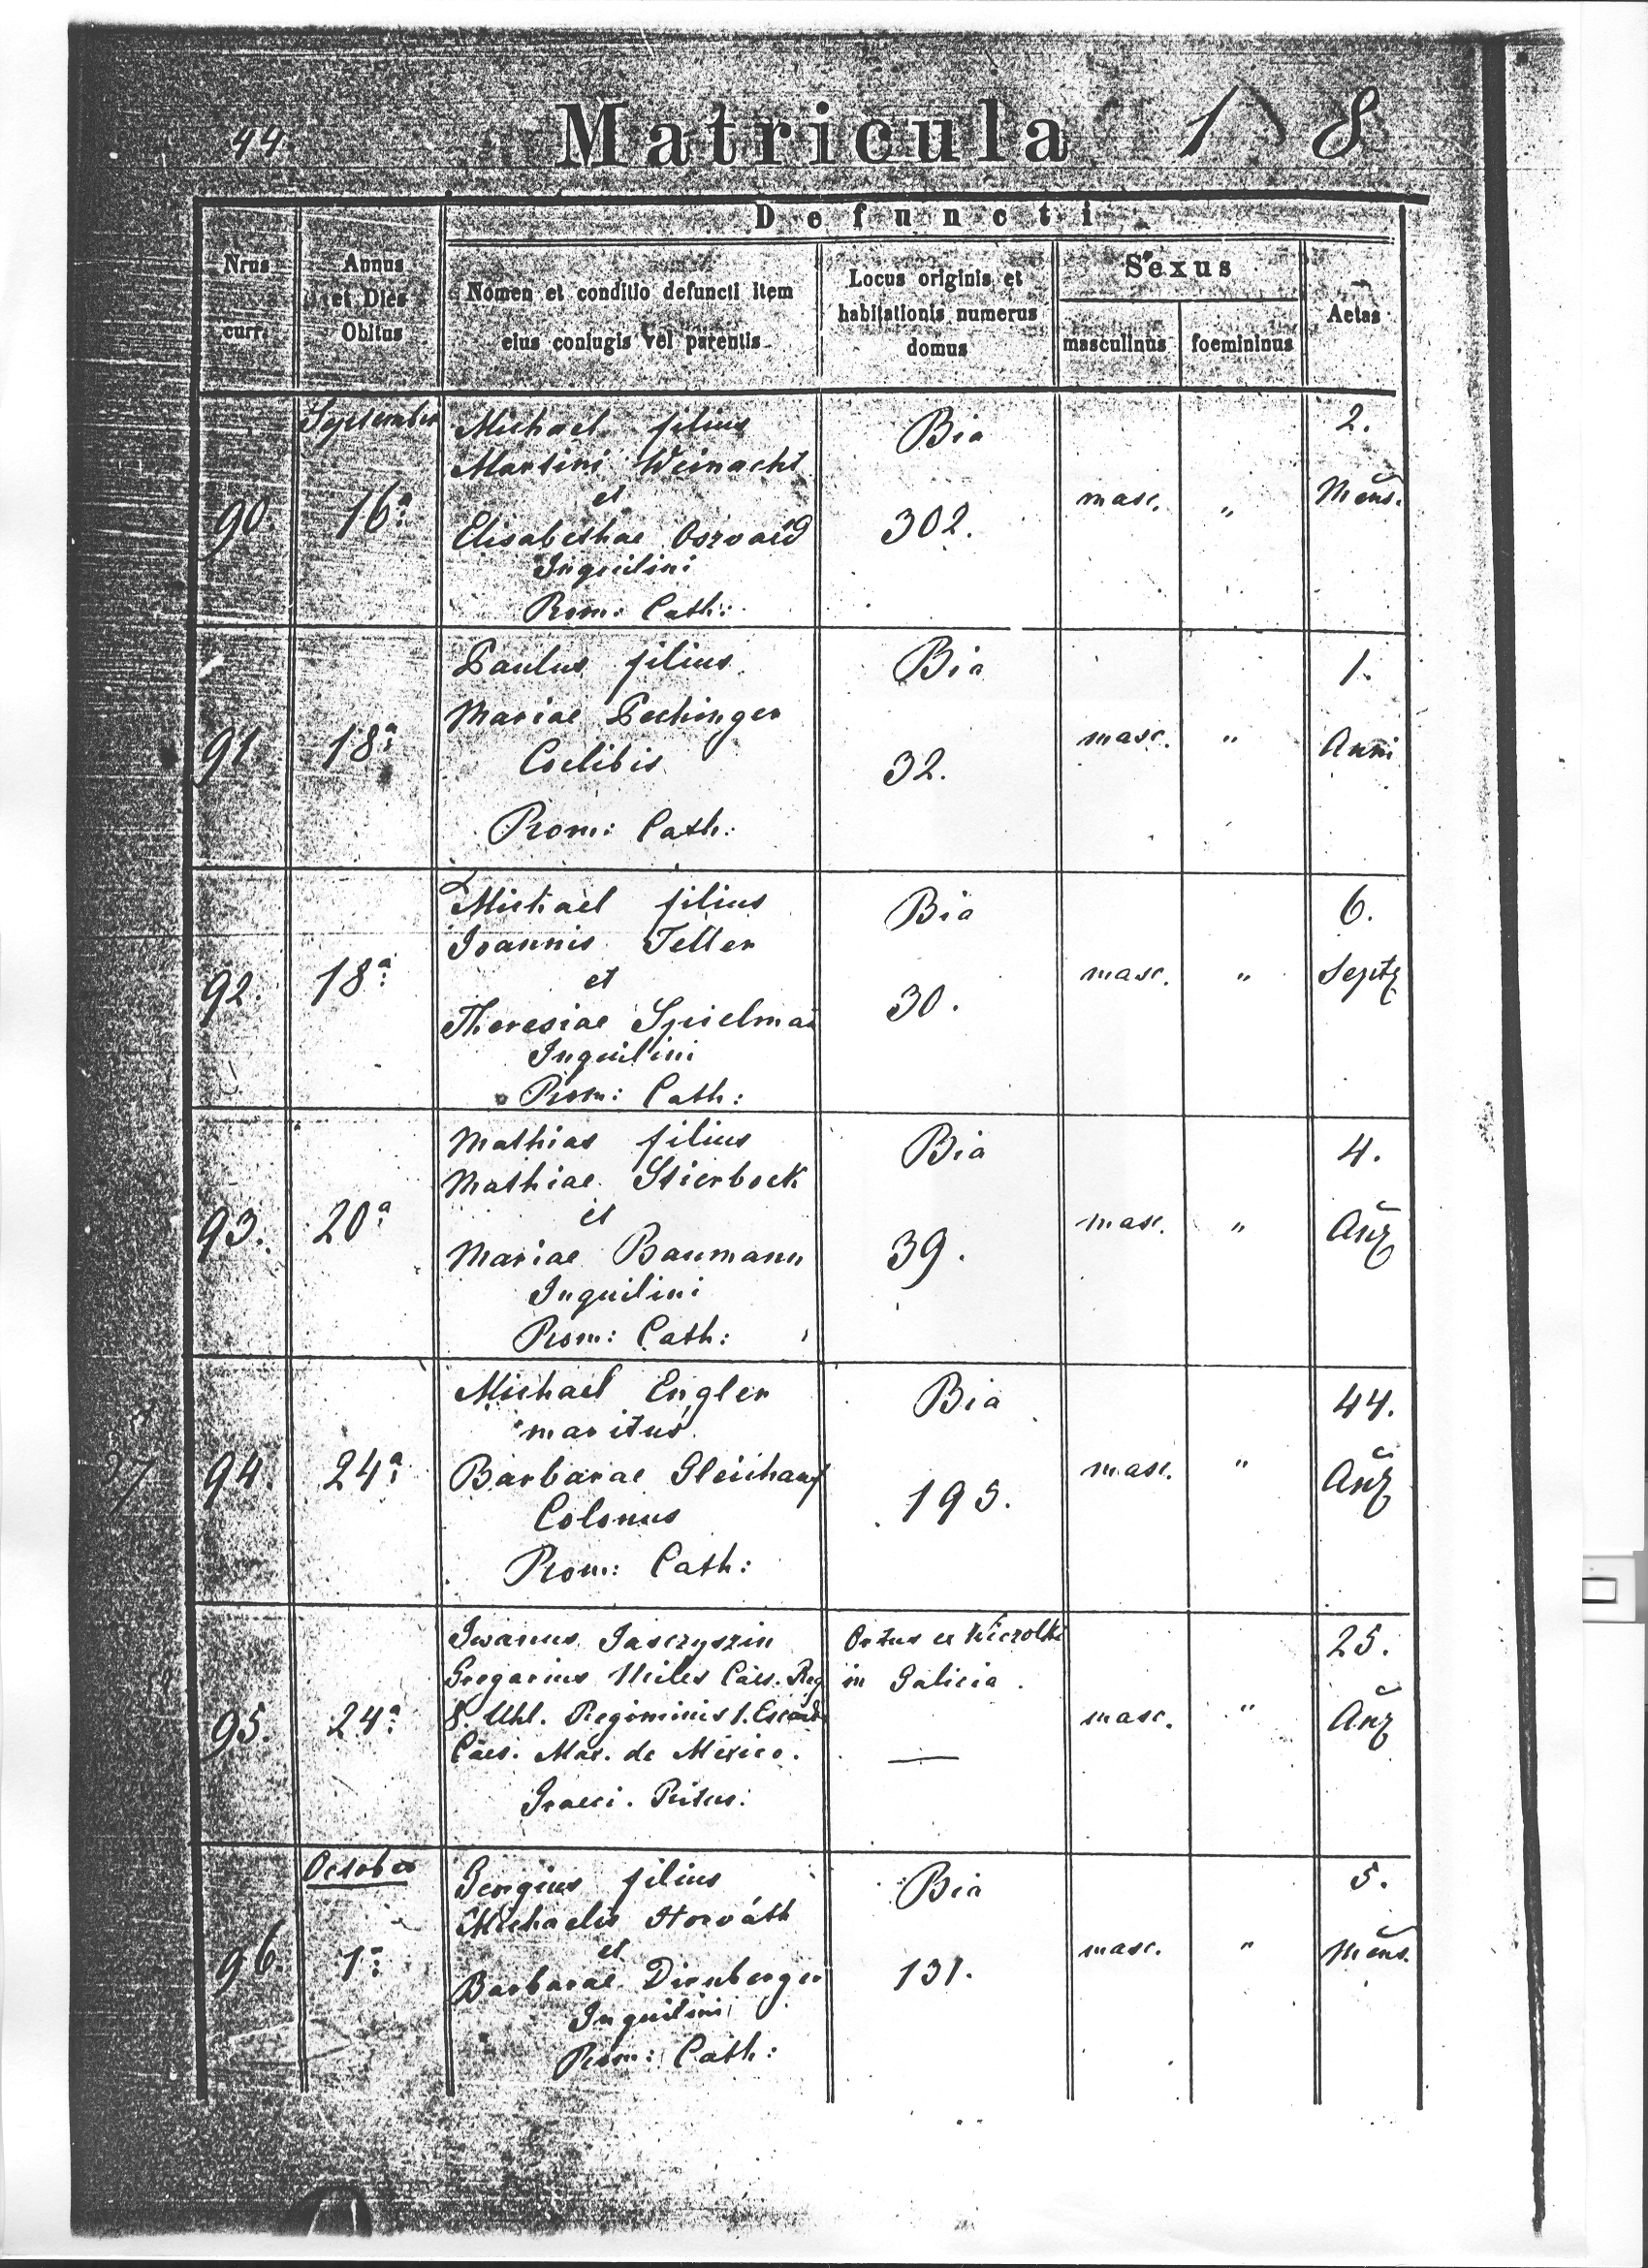 44.
Matricula 18
Defuncti
Nrus curr.
Annus et Dies Obitus
Nomen et conditio defuncti item
eius coniugis vel parentis
Locus originis et
habitationis numerus
domus
Sexus
masculinus
foemininus
Aetas
September
90.
16ª
Michael filius
Martini Weinacht
et
Elisabethae Oszvald
Inquilini
Rom: Cath:
Bia
302.
masc.
"
2.
Mens.
91
18ª
Paulus filius
Mariae Pechinger
Coelibis
Rom: Cath:
Bia
32.
masc.
"
1.
Anni
92.
18ª
Michael filius
Joannis Teller
et
Theresiae Spielman
Inquilini
Rom: Cath:
Bia
30.
masc.
"
6.
Sept
93.
20ª
Mathias filius
Mathiae Stierbock
et
Mariae Baumann
Inquilini
Rom: Cath:
Bia
39.
masc.
"
4.
Añ
94.
24ª
Michael Engler
maritus
Barbarae Gleichauf
Colonus
Rom: Cath:
Bia
195.
masc.
"
44.
Añ
95.
24ª
Iwanus Jasczyszin
Gregarius Miles Cäes. Reg
8. Uhl. Regiminis 1.
Cäes. Max. de Mexico.
Graeci. Ritus:
Ortus ex
in Galicia.
—
masc.
"
25.
Añ
October
96.
1ª
Georgius filius
Michaelis Horváth
et
Barbarae Dirnberger
Inquilini
Rom: Cath:
Bia
131.
masc.
"
5.
Mens.